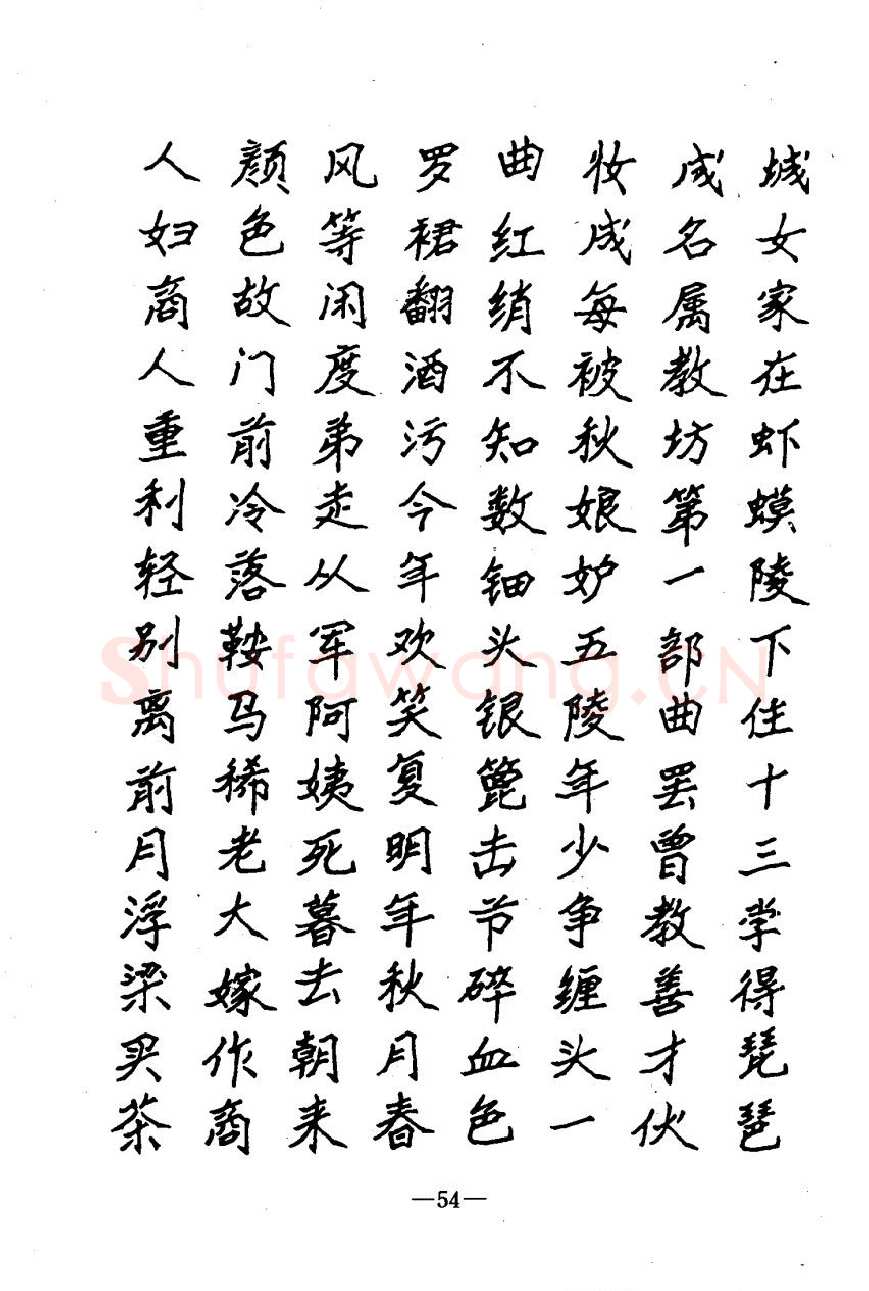 城女家在虾蟆陵下住十三学得琵琶
成名属教坊第一部曲罢曾教善才伏
妆成每被秋娘妒五陵年少争缠头一
曲红绡不知数钿头银篦击节碎血色
罗裙翻酒污今年欢笑复明年秋月春
风等闲度弟走从军阿姨死暮去朝来
颜色故门前冷落鞍马稀老大嫁作商
人妇商人重利轻别离前月浮梁买茶
Shufawang.CN
—54—